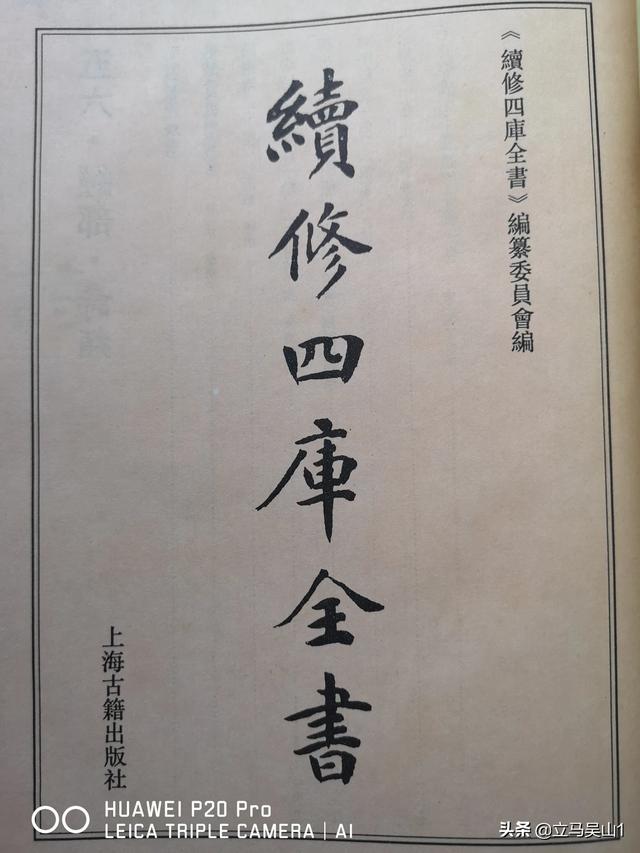 《續修四庫全書》編纂委員會編
續修四庫全書
上海古籍出版社
HUAWEI P20 Pro
LEICA TRIPLE CAMERA | AI
头条 @立马吴山1